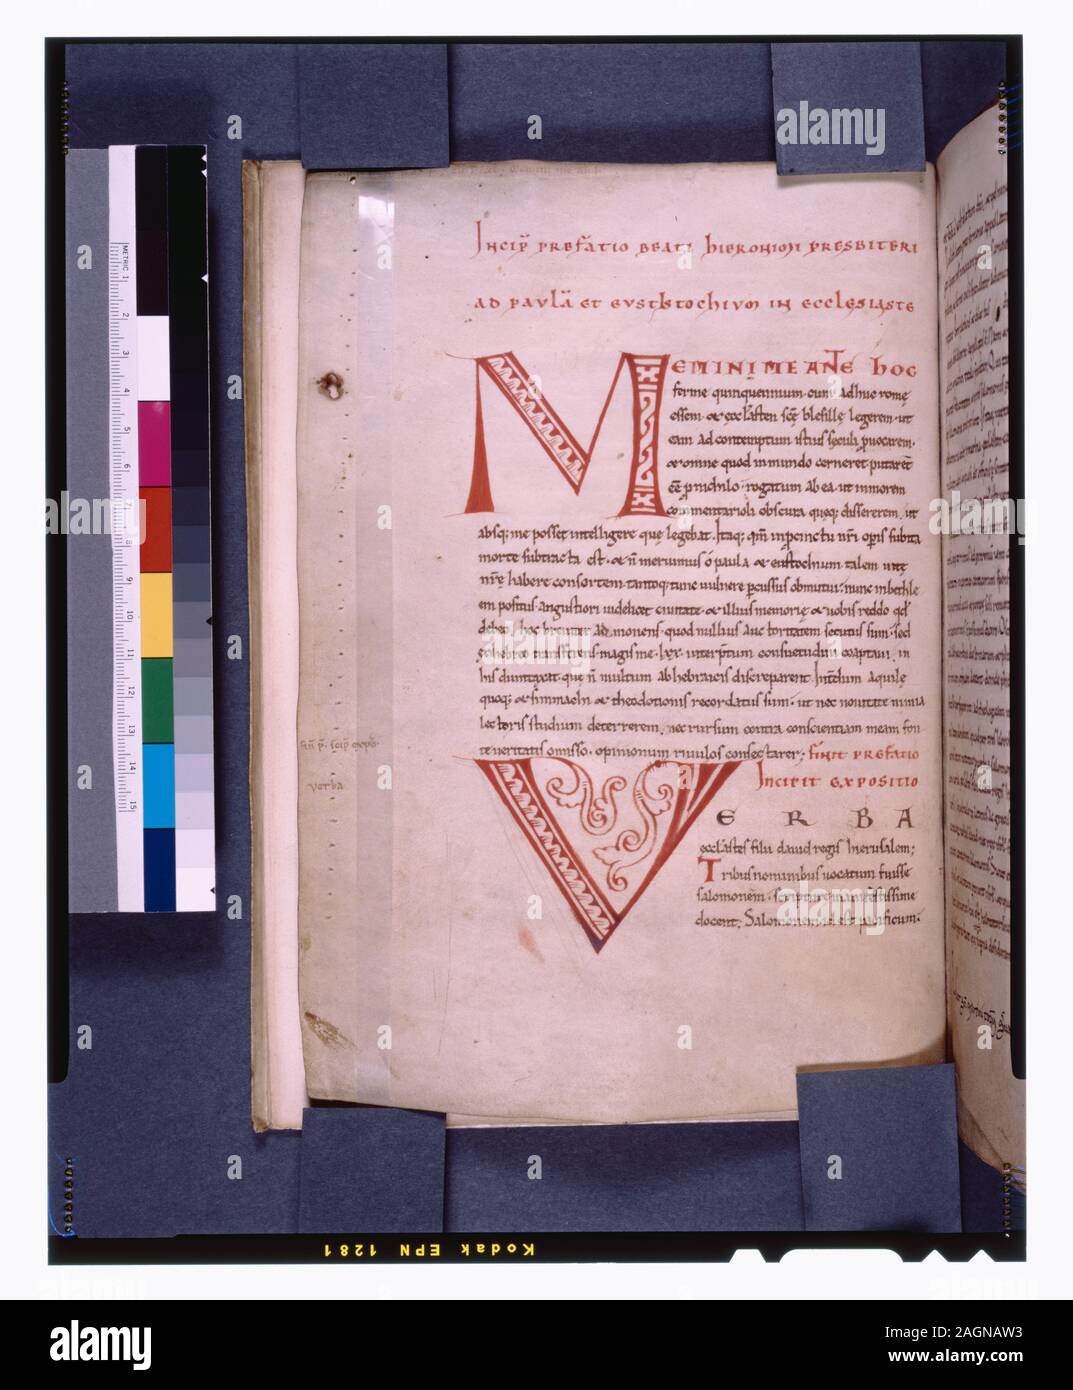 Incip prefatio beati hieronimi presbiteri
ad paulā et eustochium in ecclesiaste
MEMINI ME ANTE hoc
ferme quinquennium cum adhuc romę
essem et ecclāsten scē blesillę legerem ut
eam ad contemptum istius sęculi puocarem
et omne quod in mundo cerneret putaret
eē p nichilo rogatum ab ea ut in morem
commentarioli obscura quęq; dissererem ut
absq; me posset intelligere quę legebat. Itaq; qm̄ in pcinctu nr̄i opis subita
morte subtracta est et n̄ meruimus o paula et eustochium talem uitę
nr̄ę habere consortem tantoq; tunc uulnere pcussus obmutui nunc in bethle
em positus angustiori uidelicet ciuitate et illius memorię et uobis reddo qd
debeo hoc breuiter admonens quod nullius auctoritatem secutus sum sed
de hebreo transferens magis me lxx interptum consuetudini coaptaui in
his dumtaxat que n̄ multum ab hebraicis discreparent Interdum aquilę
quoq; et simmachi et theodotionis recordatus sum ut nec nouitate nimia
lectoris studium deterrerem nec rursum contra conscientiam meam fon
te ueritatis omisso opinionum riuulos consectarer; finit prefatio
Incipit expositio
VERBA
ecclāstes filii dauid regis hierusalem;
Tribus nominibus uocatum fuisse
salomonem scripturę manifestissime
docent; Salomonem id est pacificum
verba
METRIC 1 2 3 4 5 6 7 8 9 10 11 12 13 14 15
Kodak EPN 1281
alamy
Image ID: 2AGNAW3
www.alamy.com